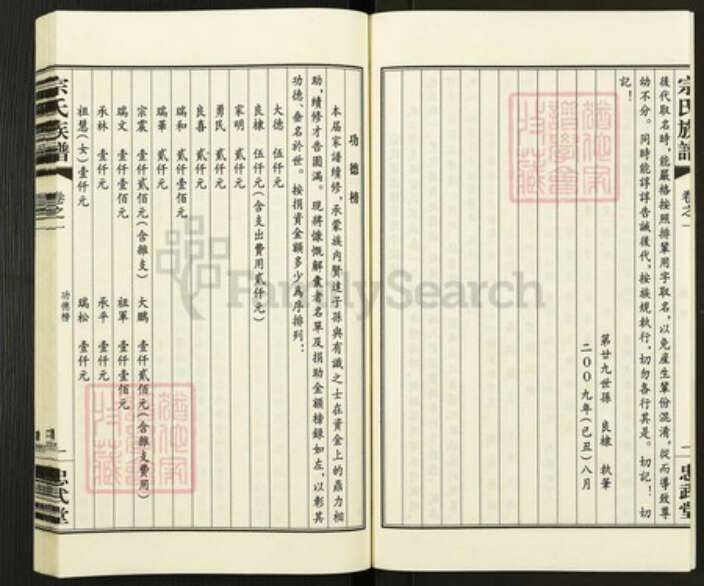 宗氏族譜
卷之一
一
忠武堂
後代取名時，能嚴格按照排輩用字取名，以免産生輩份混淆，從而導致尊
幼不分。同時能諄諄告誡後代，按族規執行，切勿各行其是。切記！切
記！
第廿九世孫 良棣 執筆
二00九年(己丑)八月
功德榜
本届家譜續修，承蒙族内賢達子孫與有識之士在資金上的鼎力相
助，續修才告圓滿。現將慷慨解囊者名單及捐助金額榜録如左，以彰其
功德、垂名於世。按捐資金額多少爲序排列：
大德 伍仟元
良棣 伍仟元(含支出費用貳仟元)
家明 貳仟元
勇民 貳仟元
良喜 貳仟元
瑞和 貳仟壹佰元
瑞華 貳仟元
宗震 壹仟貳佰元(含雜支) 大鵬 壹仟貳佰元(含雜支費用)
瑞文 壹仟壹佰元 祖軍 壹仟壹佰元
承林 壹仟元 承平 壹仟元
祖慧(女)壹仟元 瑞松 壹仟元
宗氏族譜
卷之一
功德榜
一
忠武堂
FamilySearch